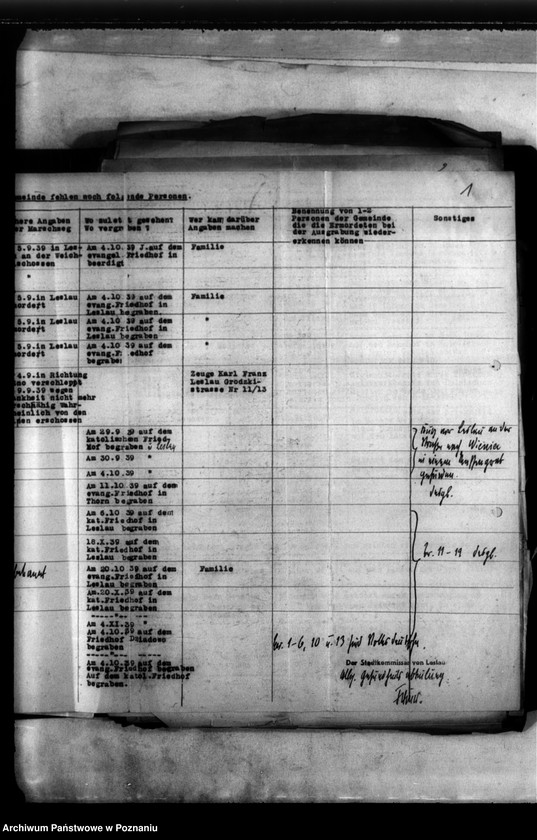 1
meinde fehlen noch folgende Personen.
here Angaben
er Marschweg
Wo zuletzt gesehen?
Wo vergraben ?
Wer kann darüber
Angaben machen
Benennung von 1-2
Personen der Gemeinde
die die Ermordeten bei
der Ausgrabung wieder-
erkennen können
Sonstiges
3.9.39 in Les-
an der Weich-
schossen
Am 4.10.39 J.auf dem
evangel.Friedhof in
beerdigt
Familie
"
8.9.in Leslau
mordert
Am 4.10 39 auf dem
evang.Friedhof in
Leslau begraben.
Familie
8.9.in Leslau
mordert
Am 4.10 39 auf dem
evang.Friedhof in
Leslau begraben
"
8.9.in Leslau
mordert
Am 4.10 39 auf dem
evang.Friedhof
begraben
"
4.9.in Richtung
no verschleppt
9.9.39 wegen
nkheit nicht mehr
rschfähig wahr-
einlich von den
en erschossen
Zeuge Karl Franz
Leslau Grodzki-
strasse Nr 11/13
Am 29.9 39 auf dem
katolischen Fried-
Hof begraben
Am 30.9.39 "
Am 4.10.39 "
Am 11.10 39 auf dem
evang.Friedhof in
Thorn begraben
Am 6.10 39 auf dem
kat.Friedhof in
Leslau begraben
18.X.39 auf dem
kat.Friedhof in
Leslau begraben
Nr. 11-19 desgl.
Am 20.10 39 auf dem
evang.Friedhof in
Leslau begraben
Familie
Am.20.X.39 auf dem
kat.Friedhof in
Leslau begraben
Am 4.XI.39 "
Am 4.10.39 auf dem
Friedhof Dziadowo
begraben
Nr. 1-6, 10 u. 13 sind Volksdeutsche.
Am 4.10.39 auf dem
evang.Friedhof begraben
Auf dem katol.Friedhof
begraben.
Der Stadtkommissar von Leslau
Archiwum Państwowe w Poznaniu